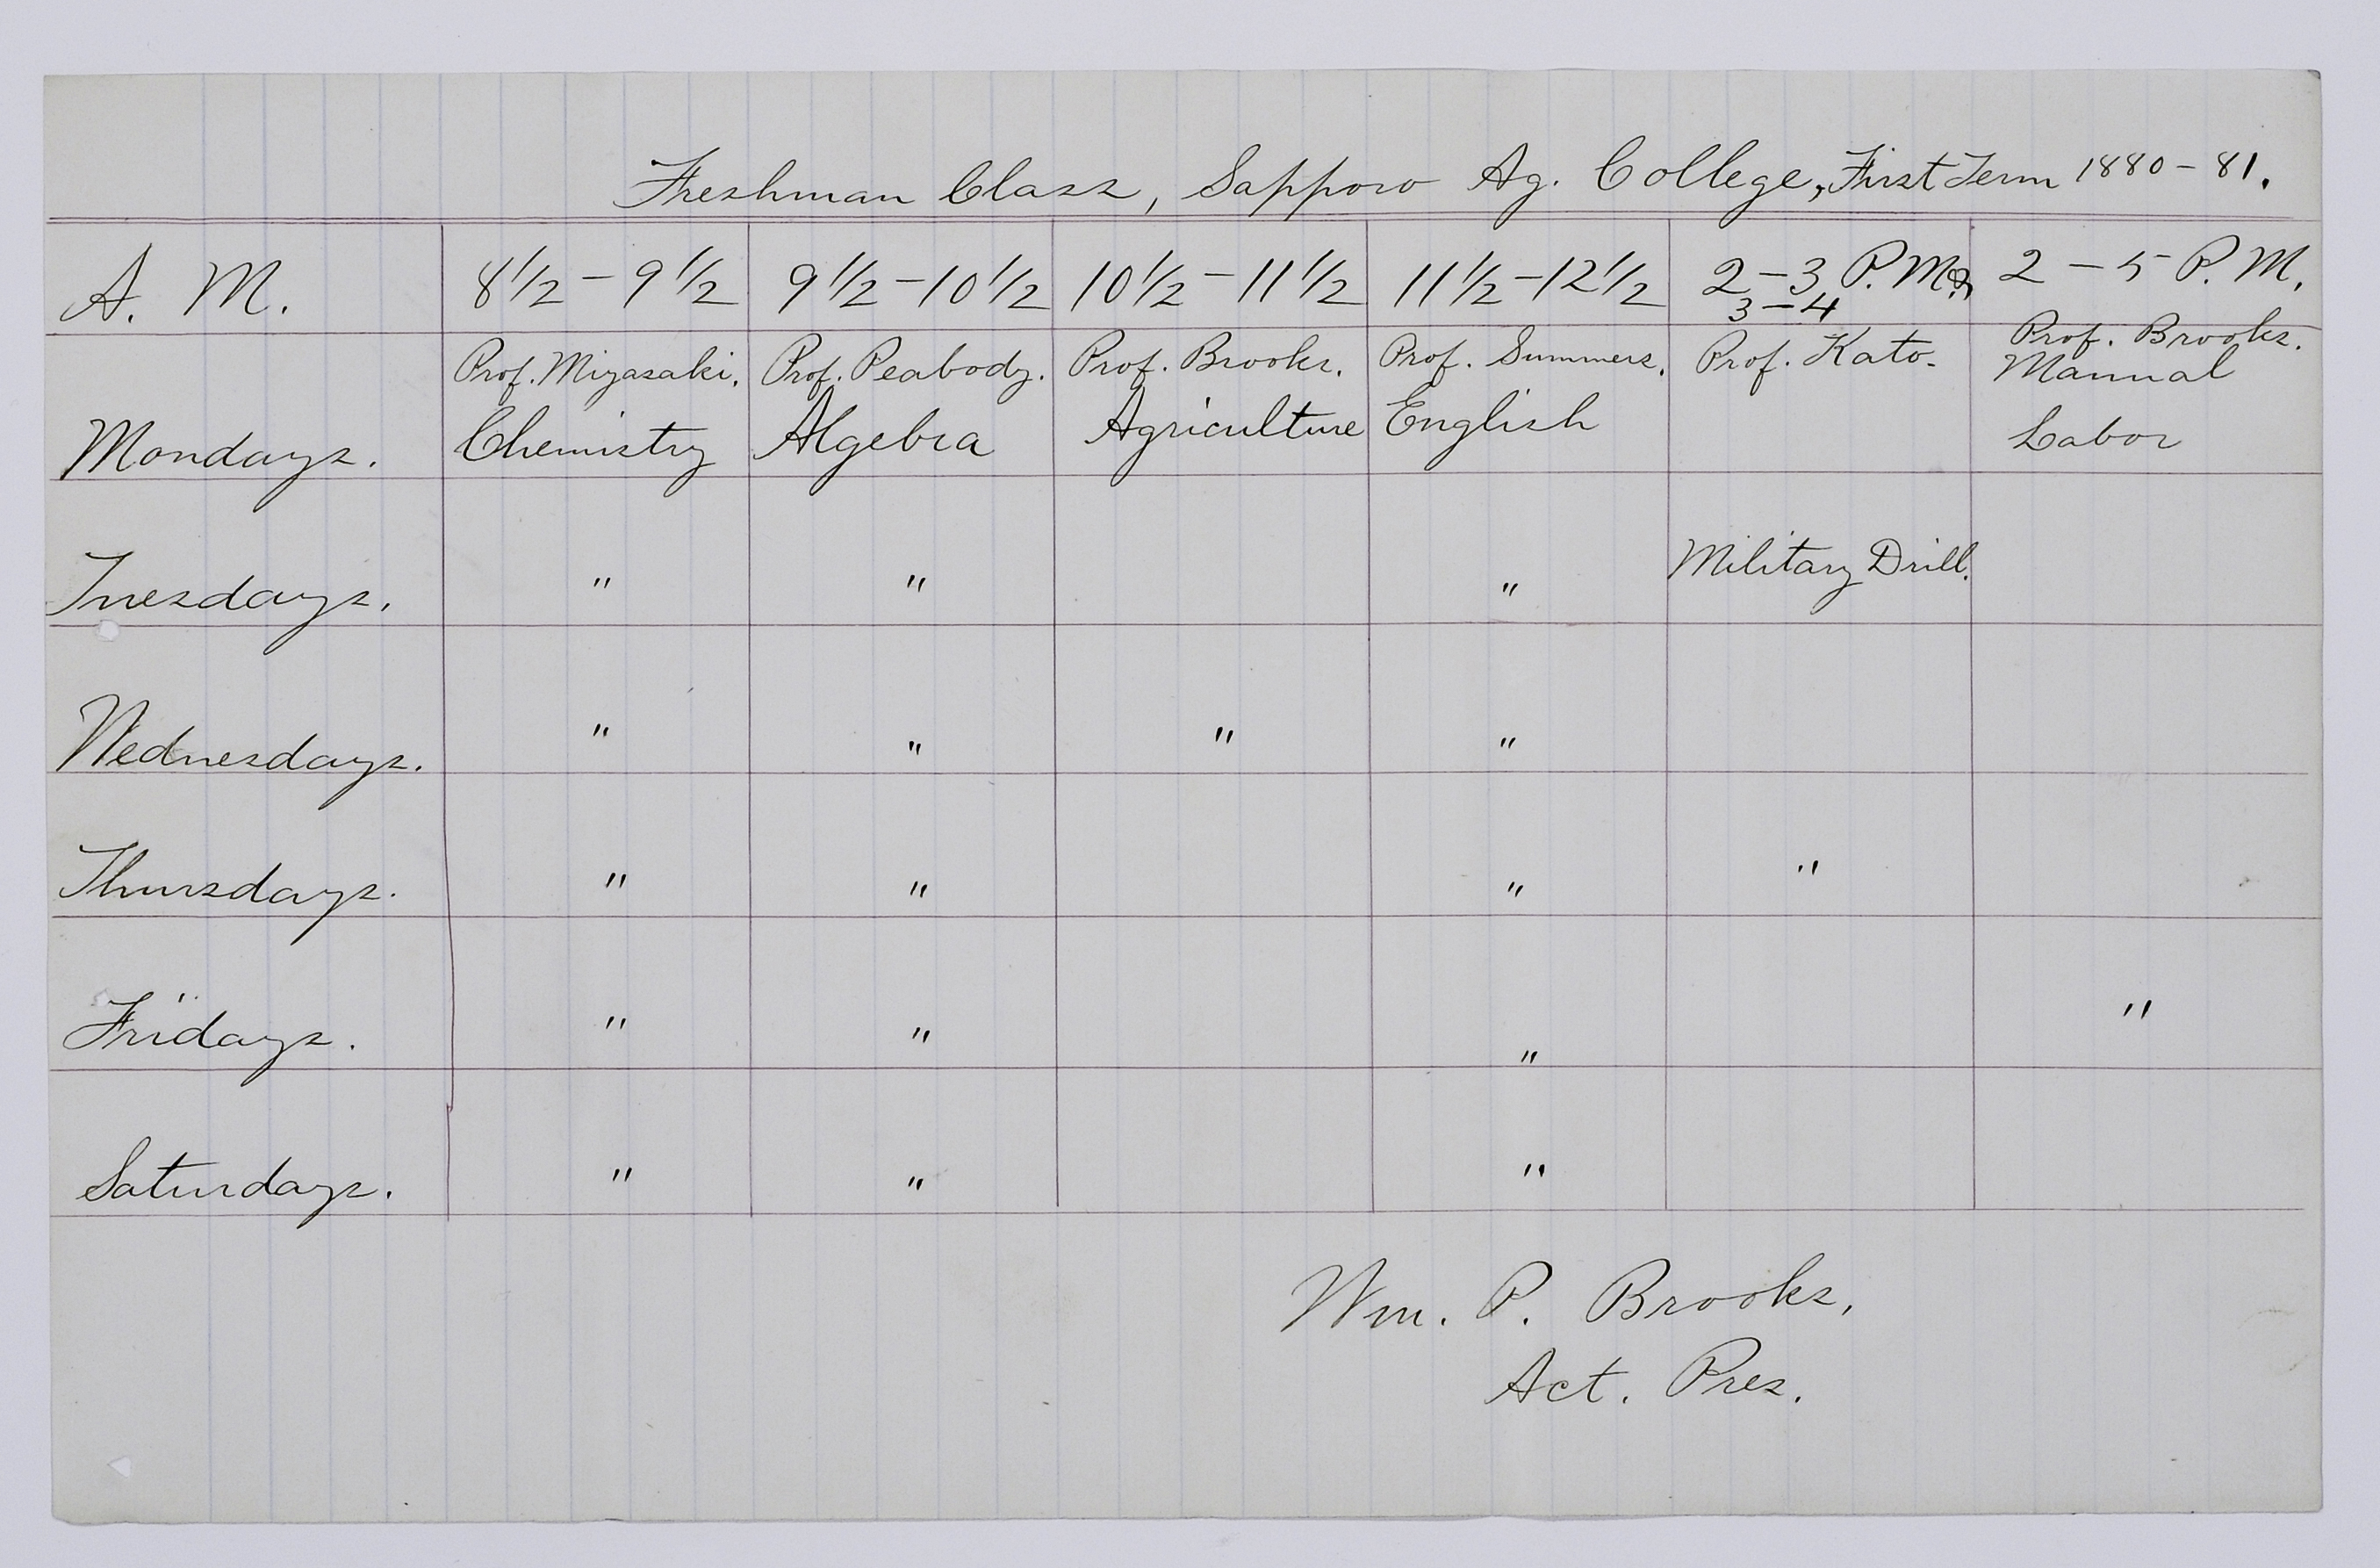 Freshman Class, Sapporo Ag. College, First Term 1880-81.
A. M. 8 1/2 - 9 1/2 9 1/2 - 10 1/2 10 1/2 - 11 1/2 11 1/2 - 12 1/2 2 - 3 P. M. & 2 - 5 P. M.
3 - 4
Prof. Miyasaki. Prof. Peabody. Prof. Brooks. Prof. Summers. Prof. Kato. Prof. Brooks.
Mondays. Chemistry Algebra Agriculture English Manual
Labor
Tuesdays. " " " Military Drill.
Wednesdays. " " " "
Thursdays. " " " "
Fridays. " " " "
Saturdays. " " "
Wm. P. Brooks,
Act. Pres.